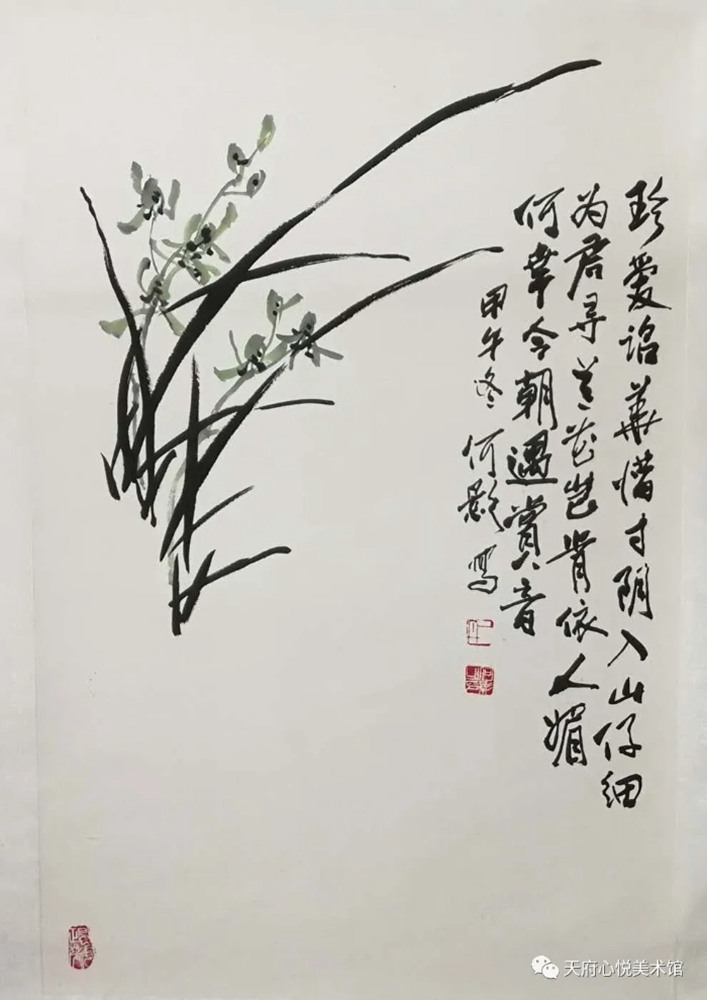 珍爱韶华惜寸阴入山仔细
为君寻兰花岂肯依人媚
何幸今朝遇赏音
甲午冬何影写
天府心悦美术馆